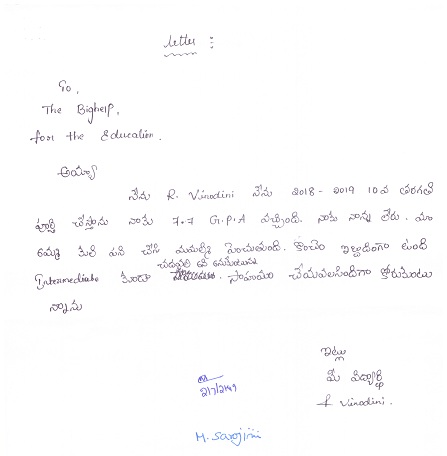 Letter :
To,
The Bighelp,
for the Education.
అయ్యా
నేను R. Vinodini నేను 2018 - 2019 10వ తరగతి
పూర్తి చేస్తాను నాకు 7.7 G.P.A వచ్చింది. నాకు నాన్న లేరు. మా
అమ్మ కులి పని చేసి మమల్ని పెంచుతుంది. కొంచెం ఇబ్బందిగా ఉంది
చదువాలి అని అనుకుంటున్న
Intermediate కూడా సాహయం చేయవలసిందిగా కోరుకుంటు
న్నాను
ఇట్లు
మీ విద్యార్థి
R Vinodini.
M. Sarojini